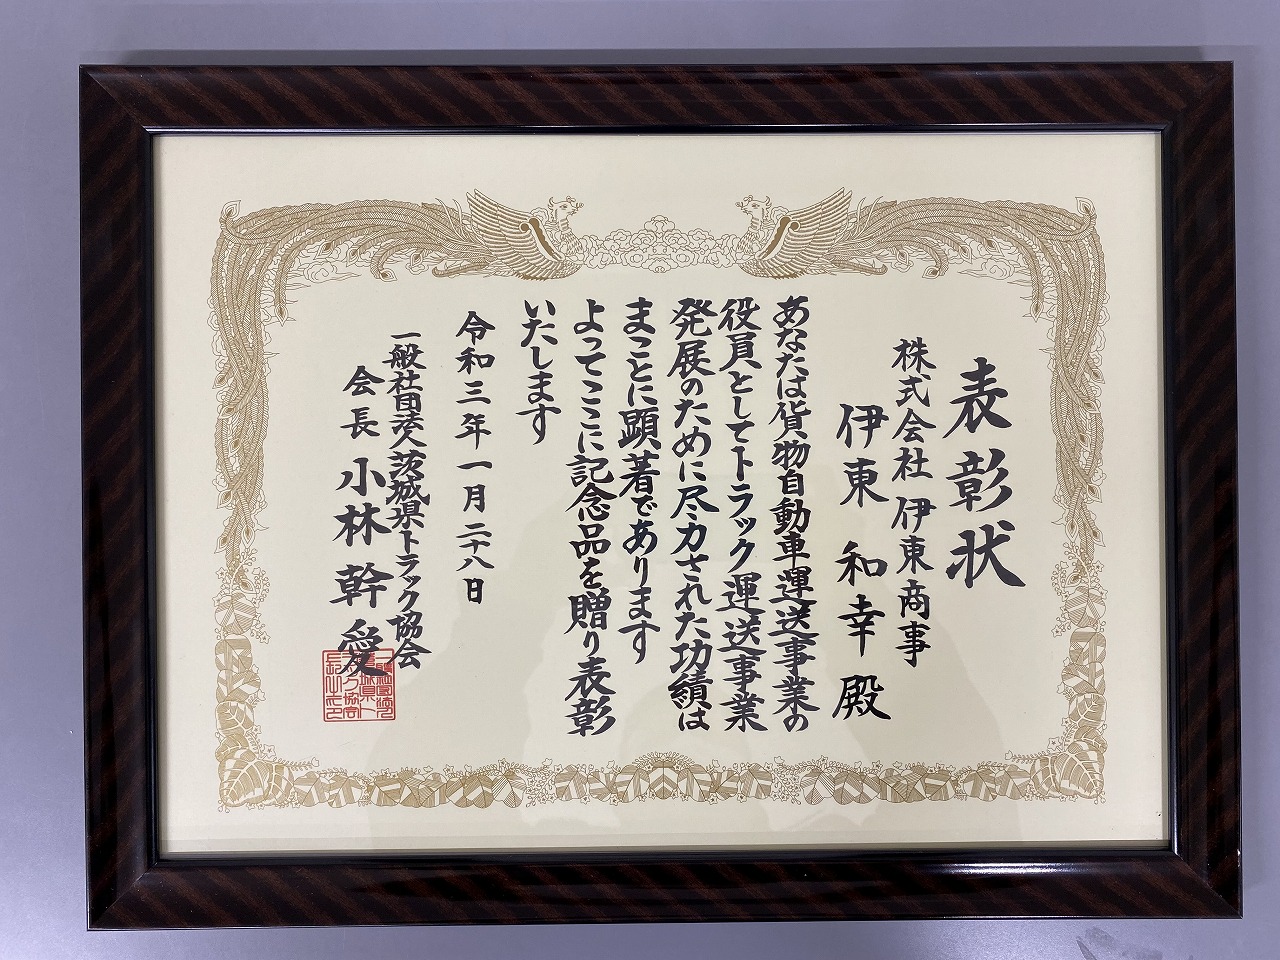 表彰状
株式会社 伊東商事
伊東 和幸 殿
あなたは貨物自動車運送事業の
役員としてトラック運送事業
発展のために尽力された功績は
まことに顕著であります
よってここに記念品を贈り表彰
いたします
令和三年一月二十八日
一般社団法人茨城県トラック協会
会長 小林 幹愛